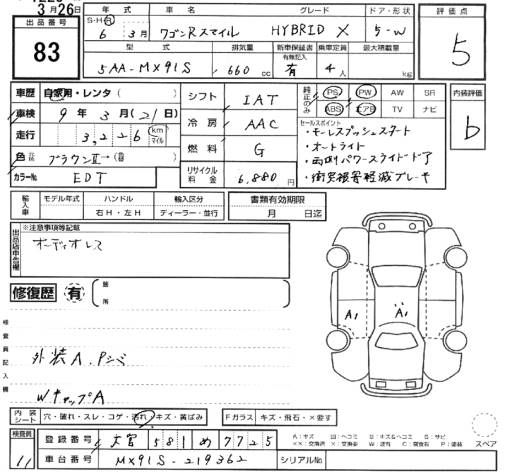 3月26日
出品番号 83
年式 S・H・R 6 3月
車名 ワゴンRスマイル
グレード HYBRID X
ドア・形状 5-W
評価点 5
型式 5AA-MX91S
排気量 660 cc
新車保証書 有無記入 有
乗車定員 4人
最大積載量 kg
車歴 自家用・レンタ( )
車検 9年3月(21日)
走行 3,226 km マイル
色 ブラウンⅡ→
カラーNo. EDT
シフト IAT
冷房 AAC
燃料 G
リサイクル料金 6,880円
純正のみ PS PW AW SR
ABS エアB TV ナビ
内装評価 b
セールスポイント
・キーレスプッシュスタート
・オートライト
・両側パワースライドドア
・衝突被害軽減ブレーキ
輸入車 モデル年式 ハンドル 輸入区分
右H・左H ディーラー・並行
書類有効期限
月 日迄
※注意事項等記載
オーディオレス
修復歴 有 箇所
A1 A1
検査員記入欄
外装A.Pシミ
WキャップA
内装シート 穴・破れ・スレ・コゲ・汚れ・キズ・黄ばみ
Fガラス キズ・飛石・×要す
スペア
検査員 11
登録番号 大宮 581 め 7725
車台番号 MX91S-219362
シリアルNo.